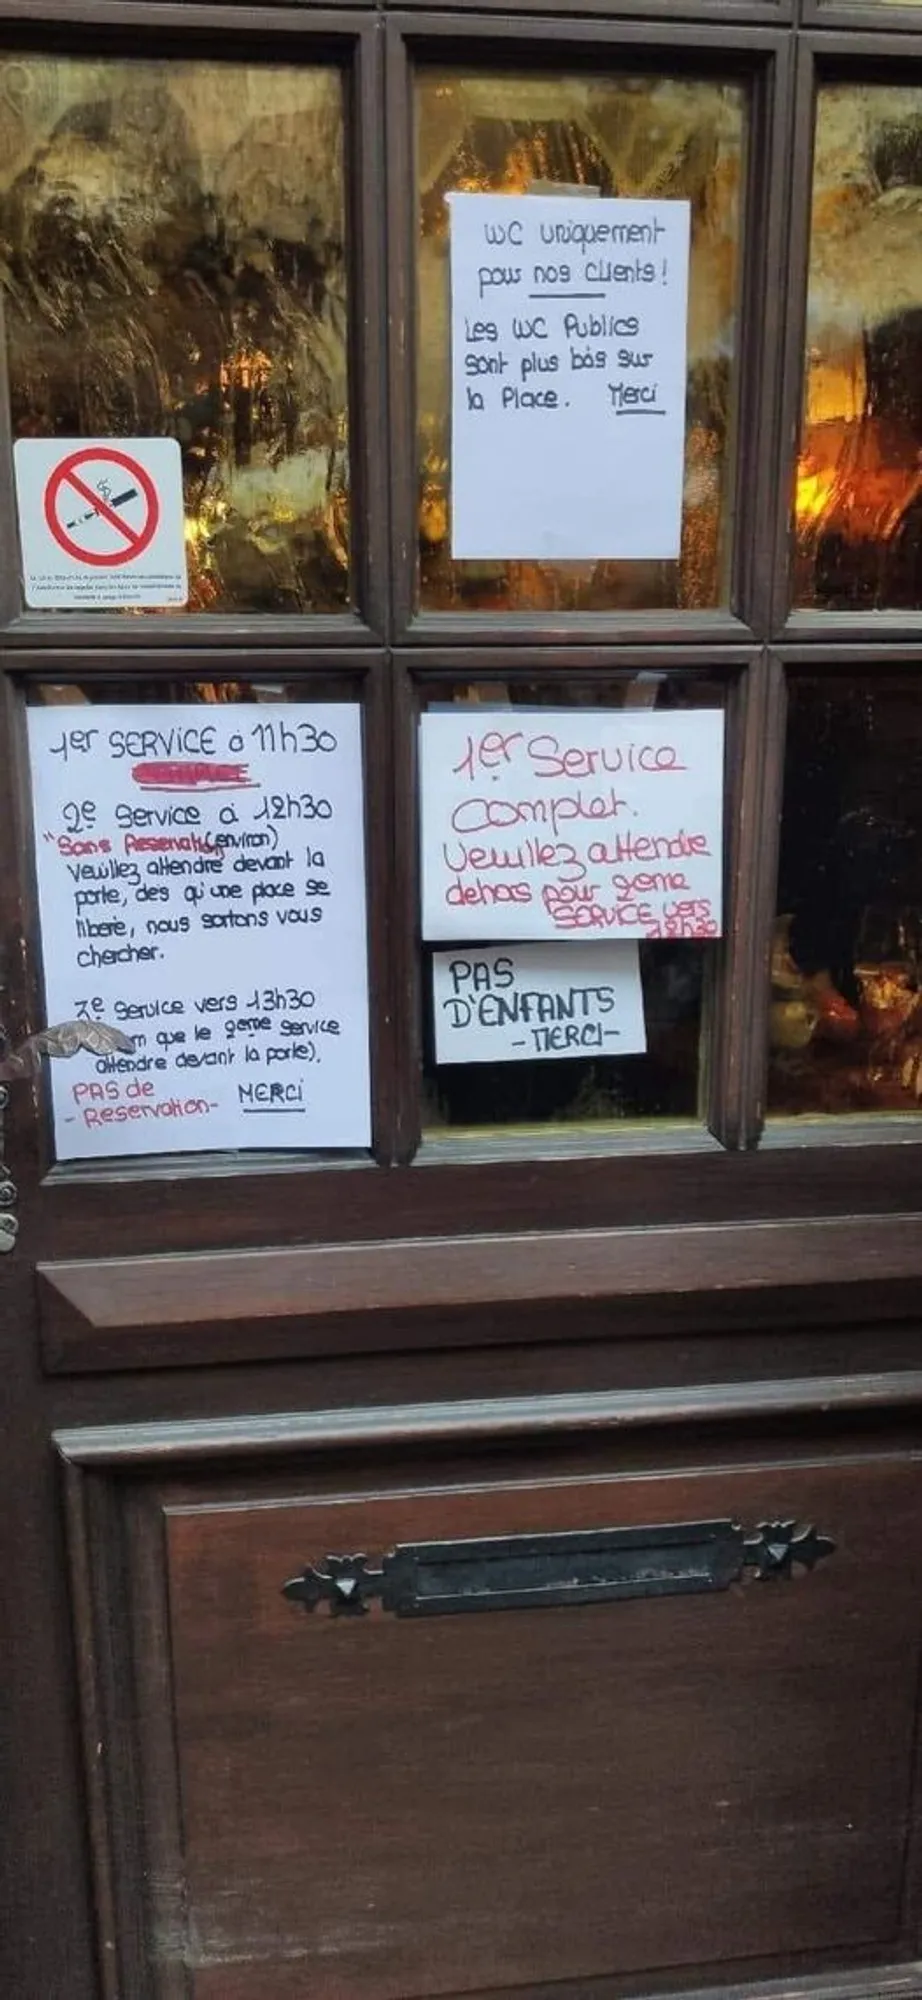 WC uniquement
pour nos clients !
Les WC Publics
sont plus bas sur
la Place. Merci
1er SERVICE à 11h30
2e Service à 12h30
"Sans Reservat (environ)
Veuillez attendre devant la
porte, des qu'une place se
libere, nous sortons vous
chercher.
3e Service vers 13h30
que le 2eme Service
attendre devant la porte).
PAS de
- Reservation - MERCI
1er Service
Complet.
Veuillez attendre
dehors pour 2eme
SERVICE vers
12h30
PAS
D'ENFANTS
- MERCI -